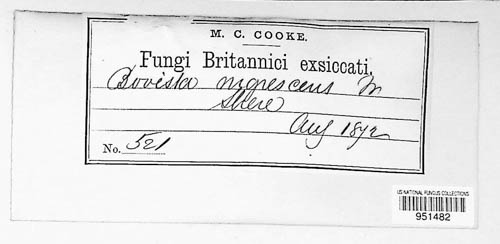 M. C. COOKE.
Fungi Britannici exsiccati.
Bovista nigrescens
Aug 1872
No. 521
US NATIONAL FUNGUS COLLECTIONS
951482